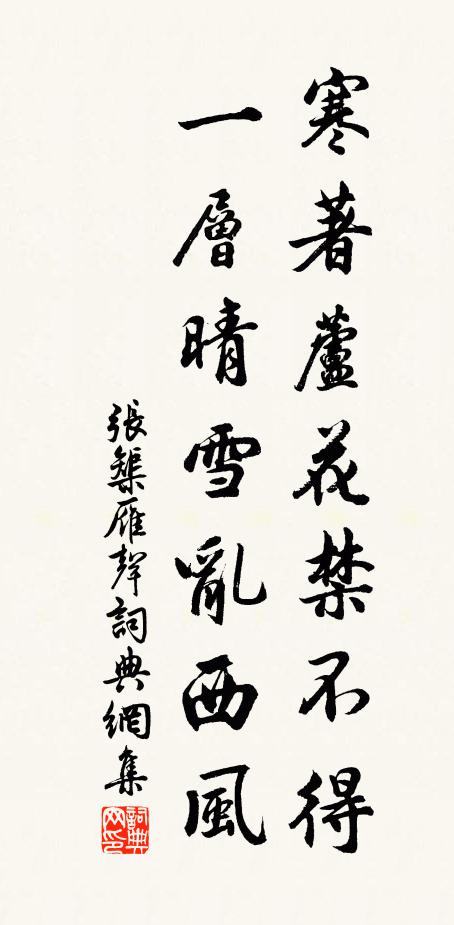 寒著蘆花禁不得
一層晴雪亂西風
張榘雁聲詞典網集
詞典網印